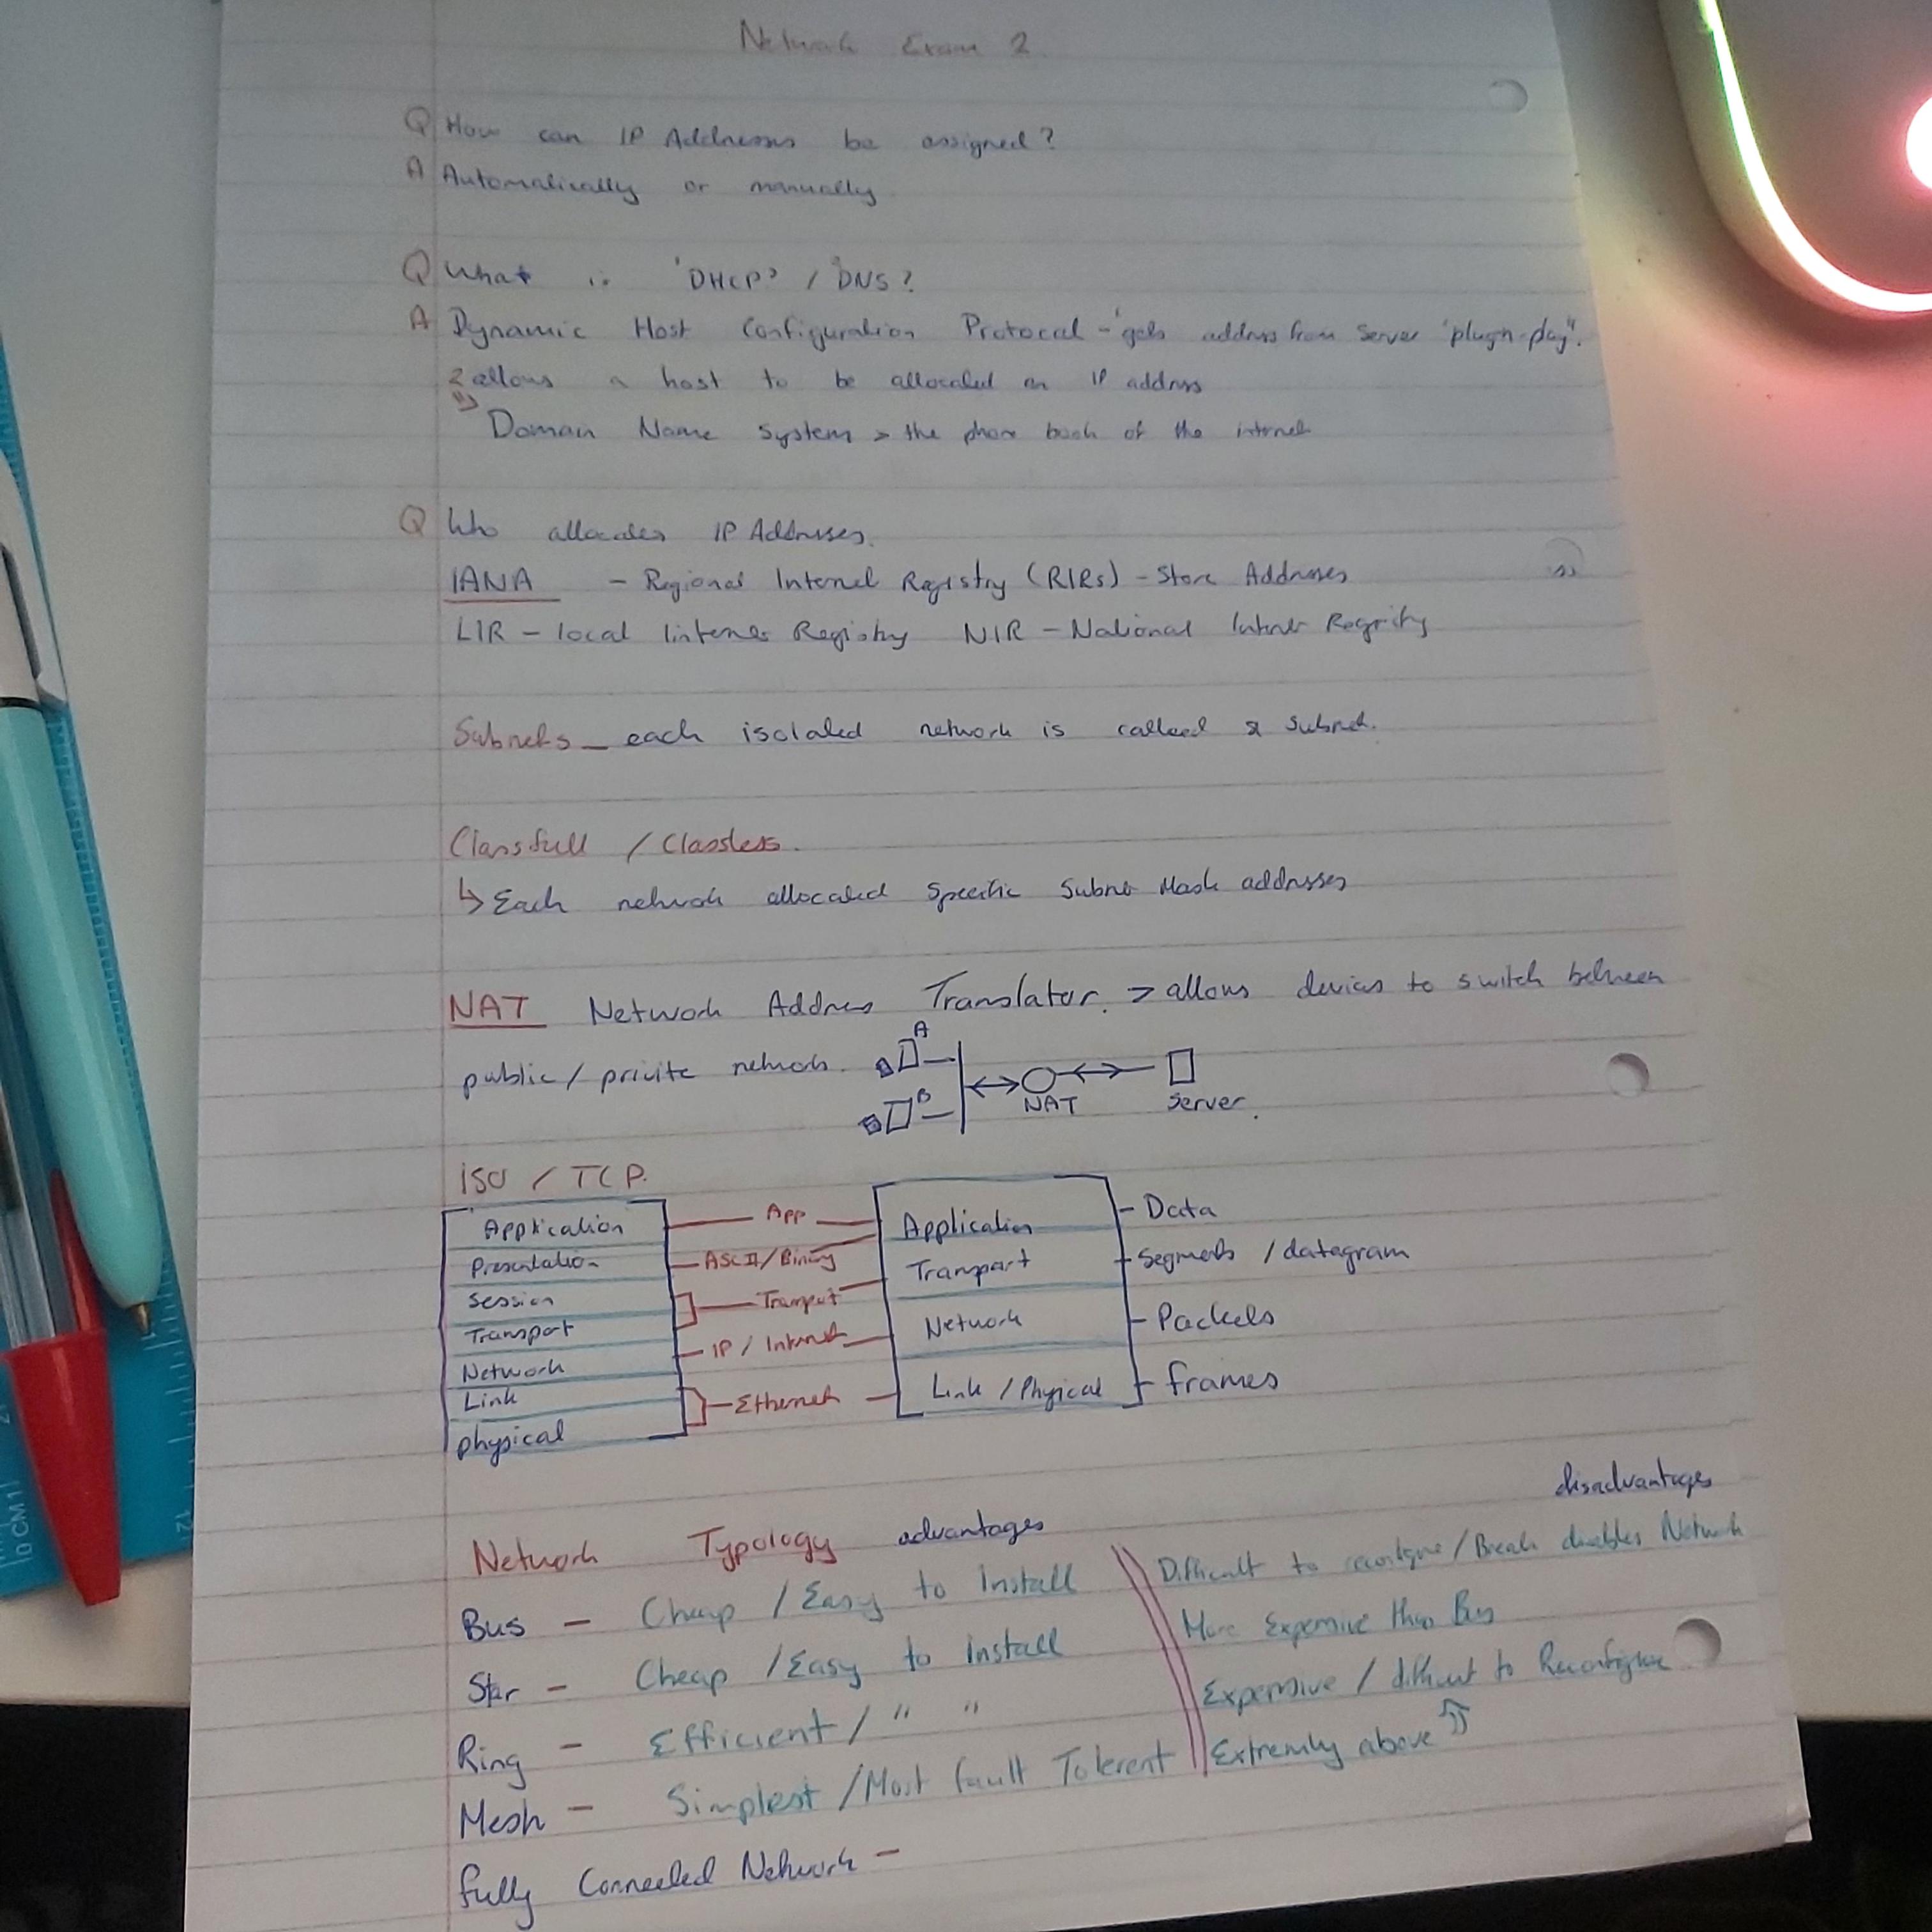 Network Exam 2
Q How can IP Addresses be assigned?
A Automatically or manually
Q What is 'DHCP' / DNS?
A Dynamic Host Configuration Protocal - 'gets address from Server "plug-n-play".
2 allows a host to be allocated an IP address
Domain Name System > the phone book of the internet
Q Who allocates IP Addresses.
IANA - Regional Internet Registry (RIRs) - Store Addresses
LIR - local Registry NIR - National
Subnets - each isolated network is called a subnet.
Classfull / Classless.
↳ Each network allocated Specific Subnet Mask addresses
NAT Network Address Translator. > allows devices to switch between
public / privite network.
A
B
NAT
Server.
ISO / TCP.
Application App Application - Data
Presentation ASCII/Binary Transport - Segments / datagram
Session Transport Network - Packets
Transport IP / Internet Link / Physical - frames
Network Ethernet
Link
physical
disadvantages
Network Typology advantages
Bus - Cheap / Easy to Install Difficult to reconfigure / Break disables Network
Star - Cheap / Easy to install More Expensive than Bus
Ring - Efficient / " " Expensive / difficult to Reconfigure
Mesh - Simplest / Most fault Tolerent Extremly above
fully Connected Network -
0 CM 1
12